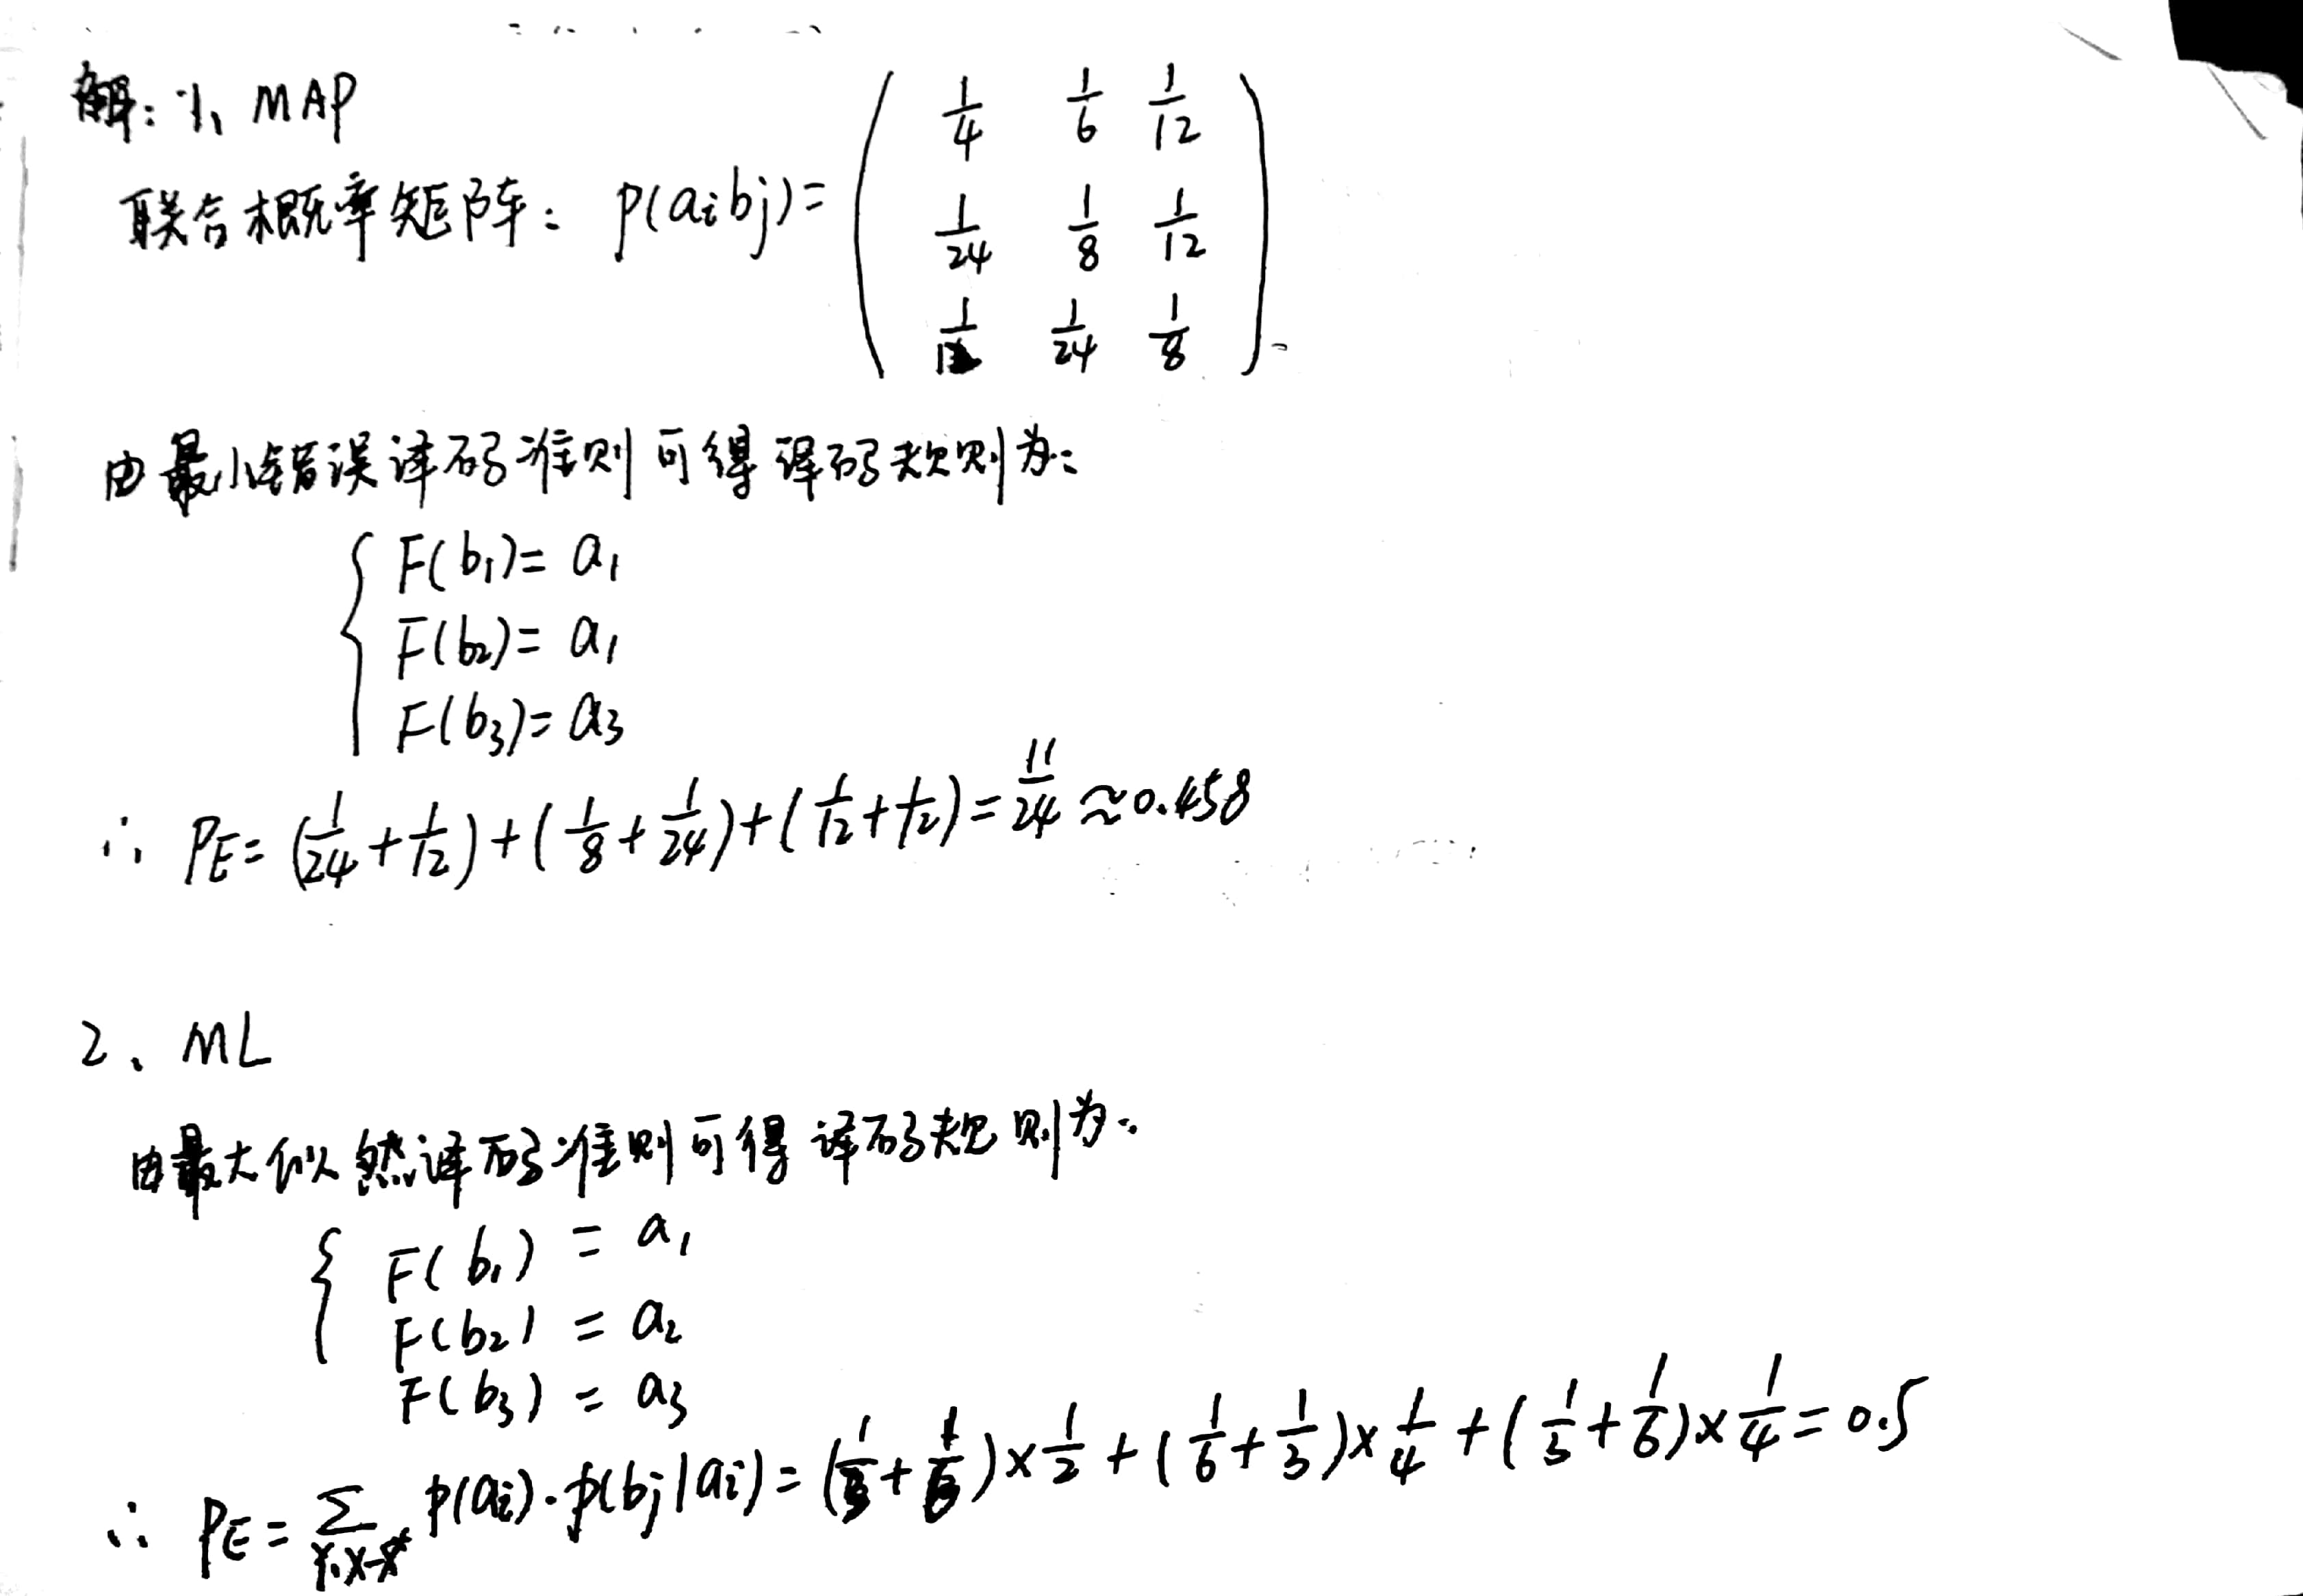 解:1、MAP
联合概率矩阵: p(aibj)= ( 1/4 1/6 1/12
1/24 1/8 1/12
1/12 1/24 1/8 ).
由最小错误译码准则可得译码规则为:
{ F(b1)= a1
F(b2)= a1
F(b3)= a3
∴ PE= (1/24+1/12)+(1/8+1/24)+(1/12+1/12)=11/24≈0.458
2、ML
由最大似然译码准则可得译码规则为:
{ F(b1) = a1
F(b2) = a2
F(b3) = a3
∴ PE= Σ p(ai)·p(bj|ai)= (1/3+1/6)×1/2+(1/6+1/3)×1/4+(1/3+1/6)×1/4=0.5